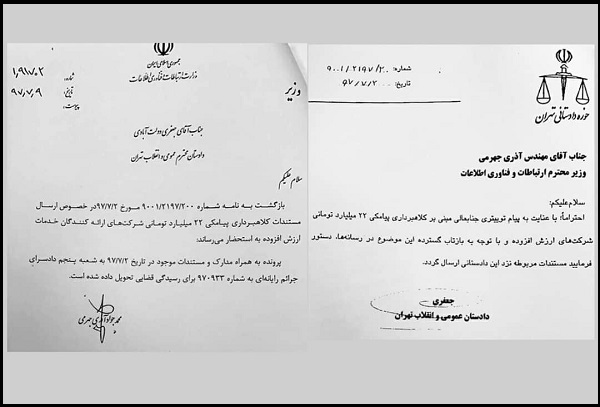 شماره: ۹۰۰۱/۲۱۹۷/۲۰۰
تاریخ: ۹۷/۷/۲
حوزه دادستانی تهران
جناب آقای مهندس آذری جهرمی
وزیر محترم ارتباطات و فناوری اطلاعات
سلام‌علیکم:
احتراماً: با عنایت به پیام توییتری جنابعالی مبنی بر کلاهبرداری پیامکی ۲۲ میلیارد تومانی
شرکت‌های ارزش افزوده و با توجه به بازتاب گسترده این موضوع در رسانه‌ها، دستور
فرمایید مستندات مربوطه نزد این دادستانی ارسال گردد.
جعفری
دادستان عمومی و انقلاب تهران
جمهوری اسلامی ایران
وزارت ارتباطات و فناوری اطلاعات
وزیر
شماره:
تاریخ: ۹۷/۷/۹
پیوست:
جناب آقای جعفری دولت آبادی
دادستان محترم عمومی و انقلاب تهران
سلام علیکم
بازگشت به نامه شماره ۹۰۰۱/۲۱۹۷/۲۰۰ مورخ ۹۷/۷/۲ درخصوص ارسال
مستندات کلاهبرداری پیامکی ۲۲ میلیارد تومانی شرکت‌های ارائه کنندگان خدمات
ارزش افزوده به استحضار می‌رساند:
پرونده به همراه مدارک و مستندات موجود در تاریخ ۹۷/۷/۲ به شعبه پنجم دادسرای
جرائم رایانه‌ای به شماره ۹۷۰۹۳۳ برای رسیدگی قضایی تحویل داده شده است.
محمد جواد آذری جهرمی